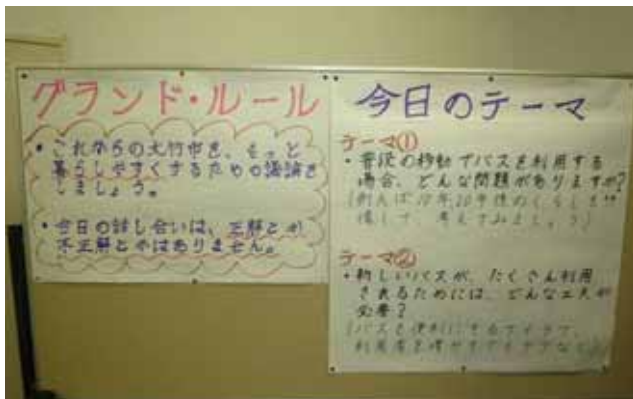 グランド・ルール
・これからの大竹市を、もっと
暮らしやすくするための議論を
しましょう。
・今日の話し合いは、正解とか
不正解とかはありません。
今日のテーマ
テーマ①
・普段の移動でバスを利用する
場合、どんな問題がありますか?
(例えば10年20年後のくらしを想
像して、考えてみましょう)
テーマ②
・新しいバスが、たくさん利用
されるためには、どんな工夫が
必要?
(バスを便利にするアイデア、
利用者を増やすアイデアなど)